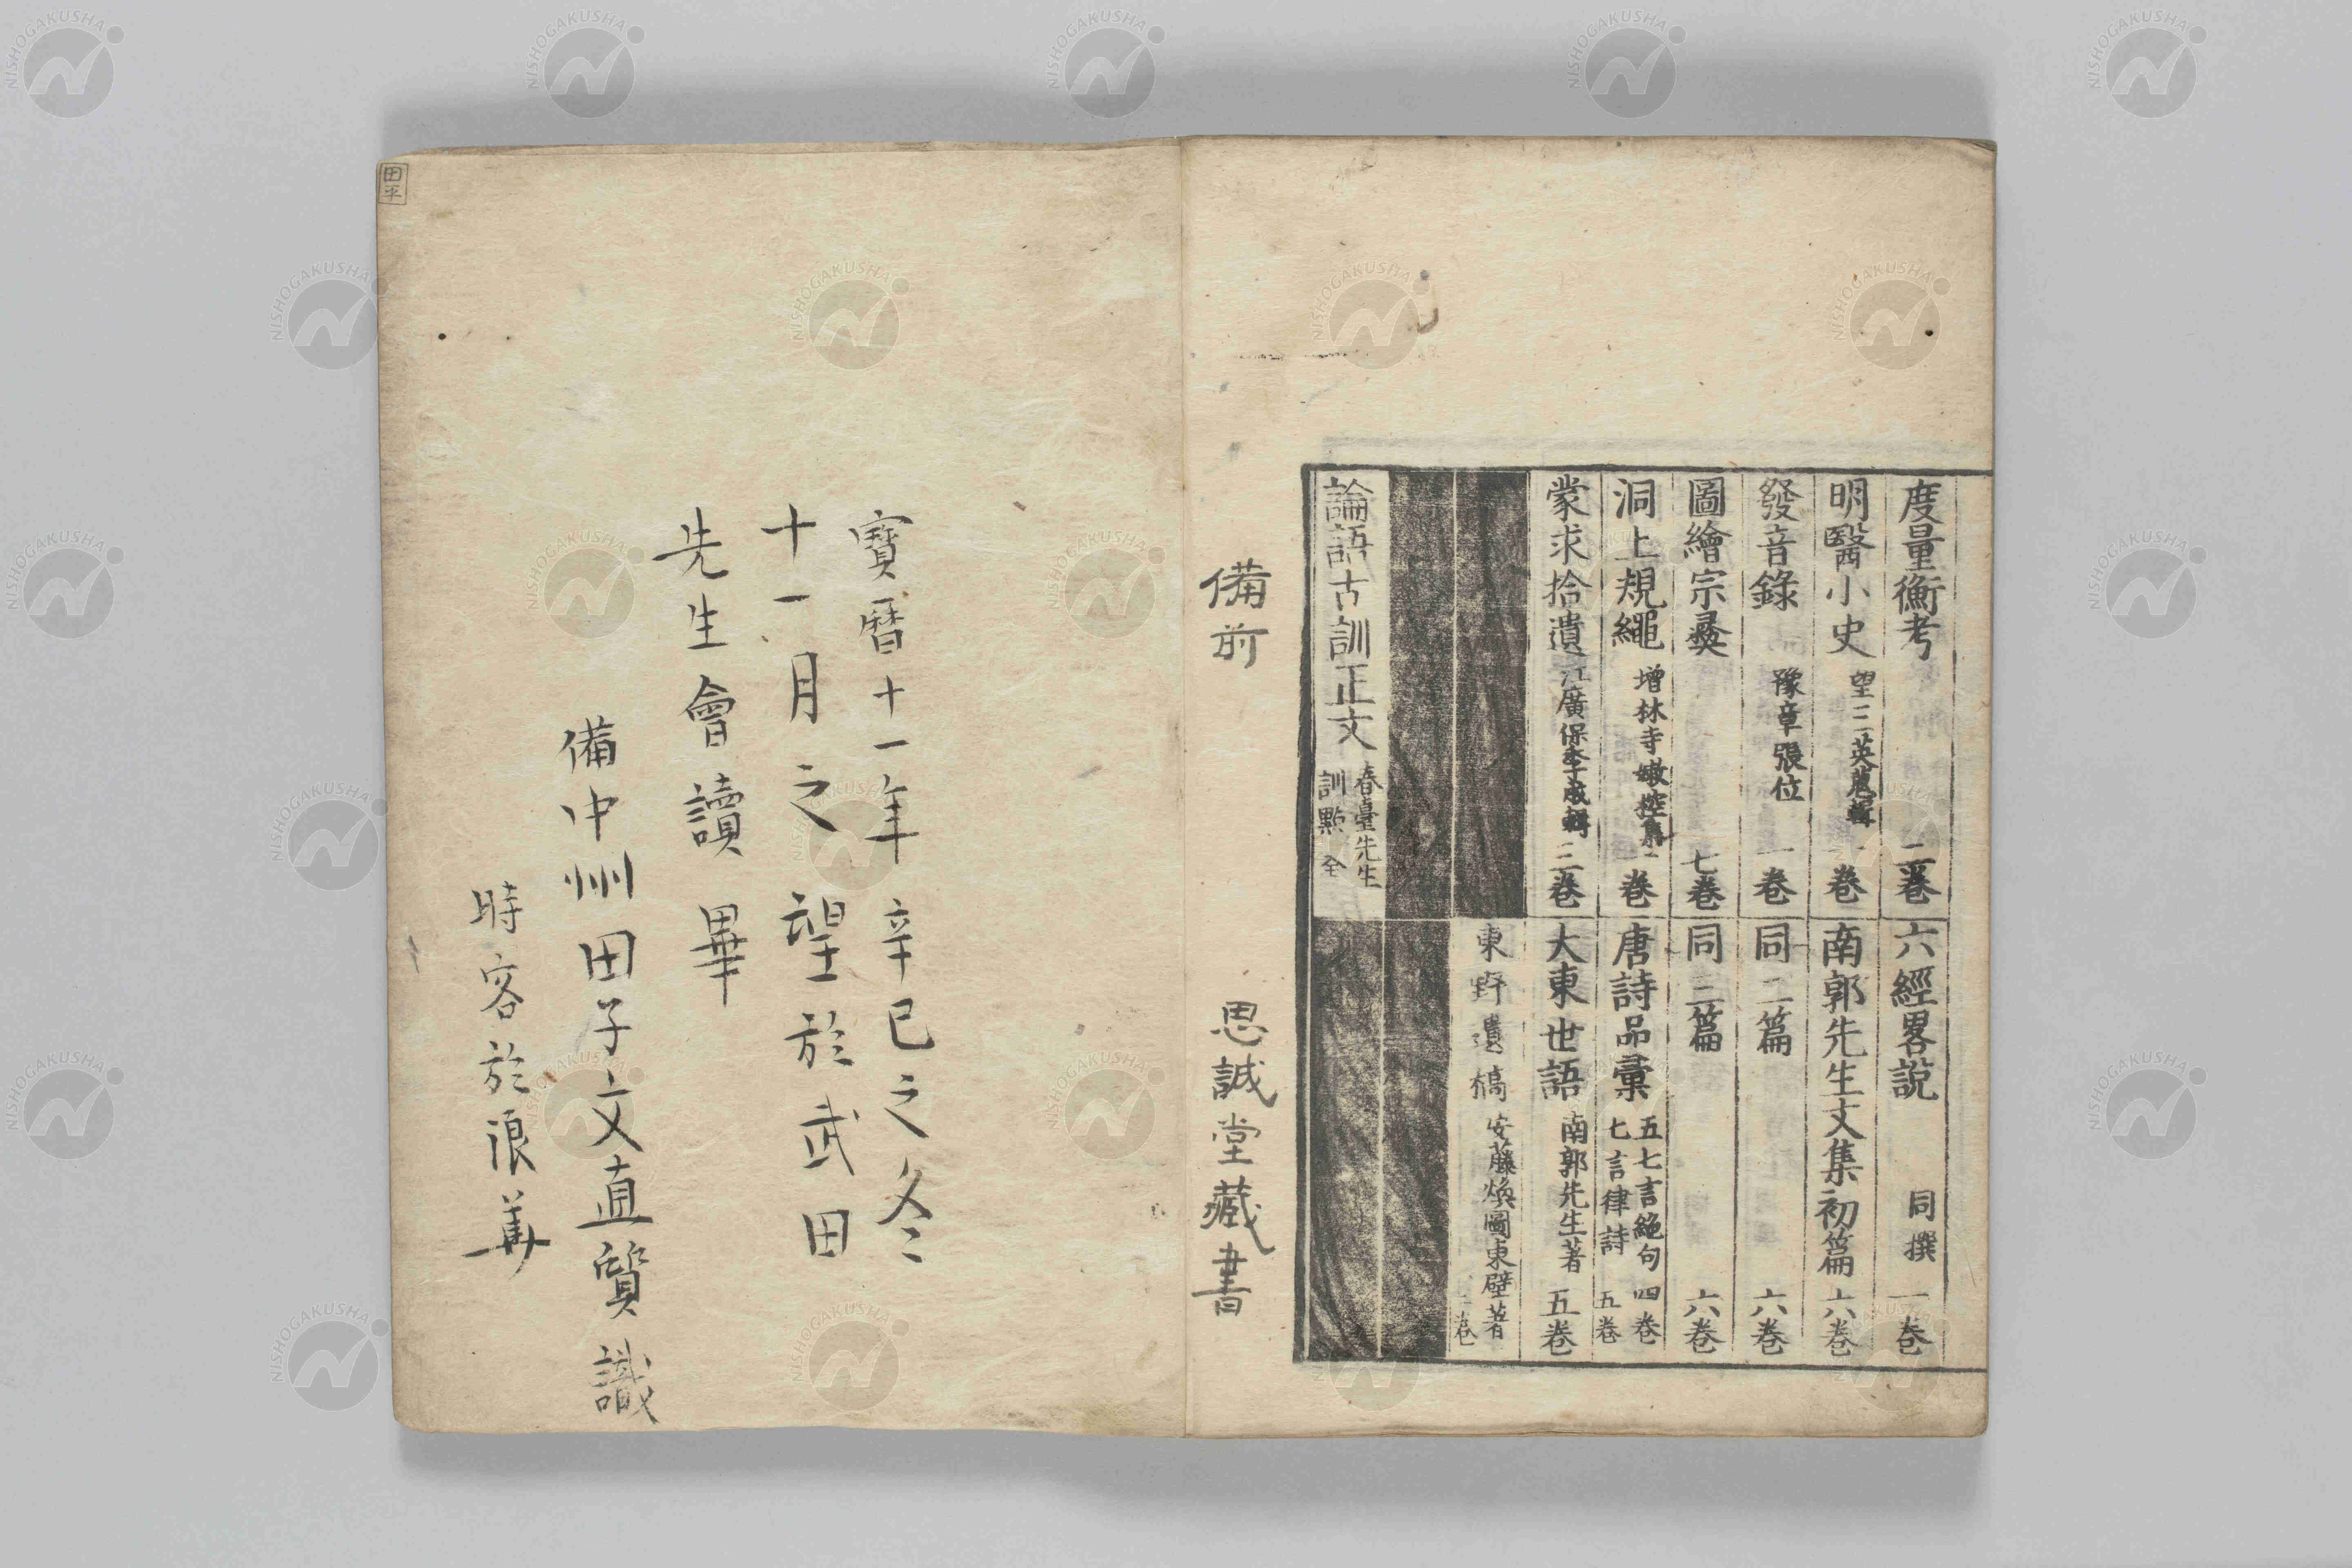 度量衡考 二卷
明醫小史 望三英輯 一卷
發音錄 豫章張位 一卷
圖繪宗彝 七卷
洞上規繩 增林寺 集 一卷
蒙求拾遺 江廣保季成輯 三卷
論語古訓正文 春臺先生訓點 全
六經畧說 同撰 一卷
南郭先生文集初篇 六卷
同二篇 六卷
同三篇 六卷
唐詩品彙 五七言絕句 四卷 七言律詩 五卷
大東世語 南郭先生著 五卷
東野遺稿 安藤煥圖東壁著 三卷
備前 思誠堂藏書
寶曆十一年辛巳之冬
十一月之望於武田
先生會讀畢
備中州田子文直質識
時客於浪華
田平
NISHOGAKUSHA